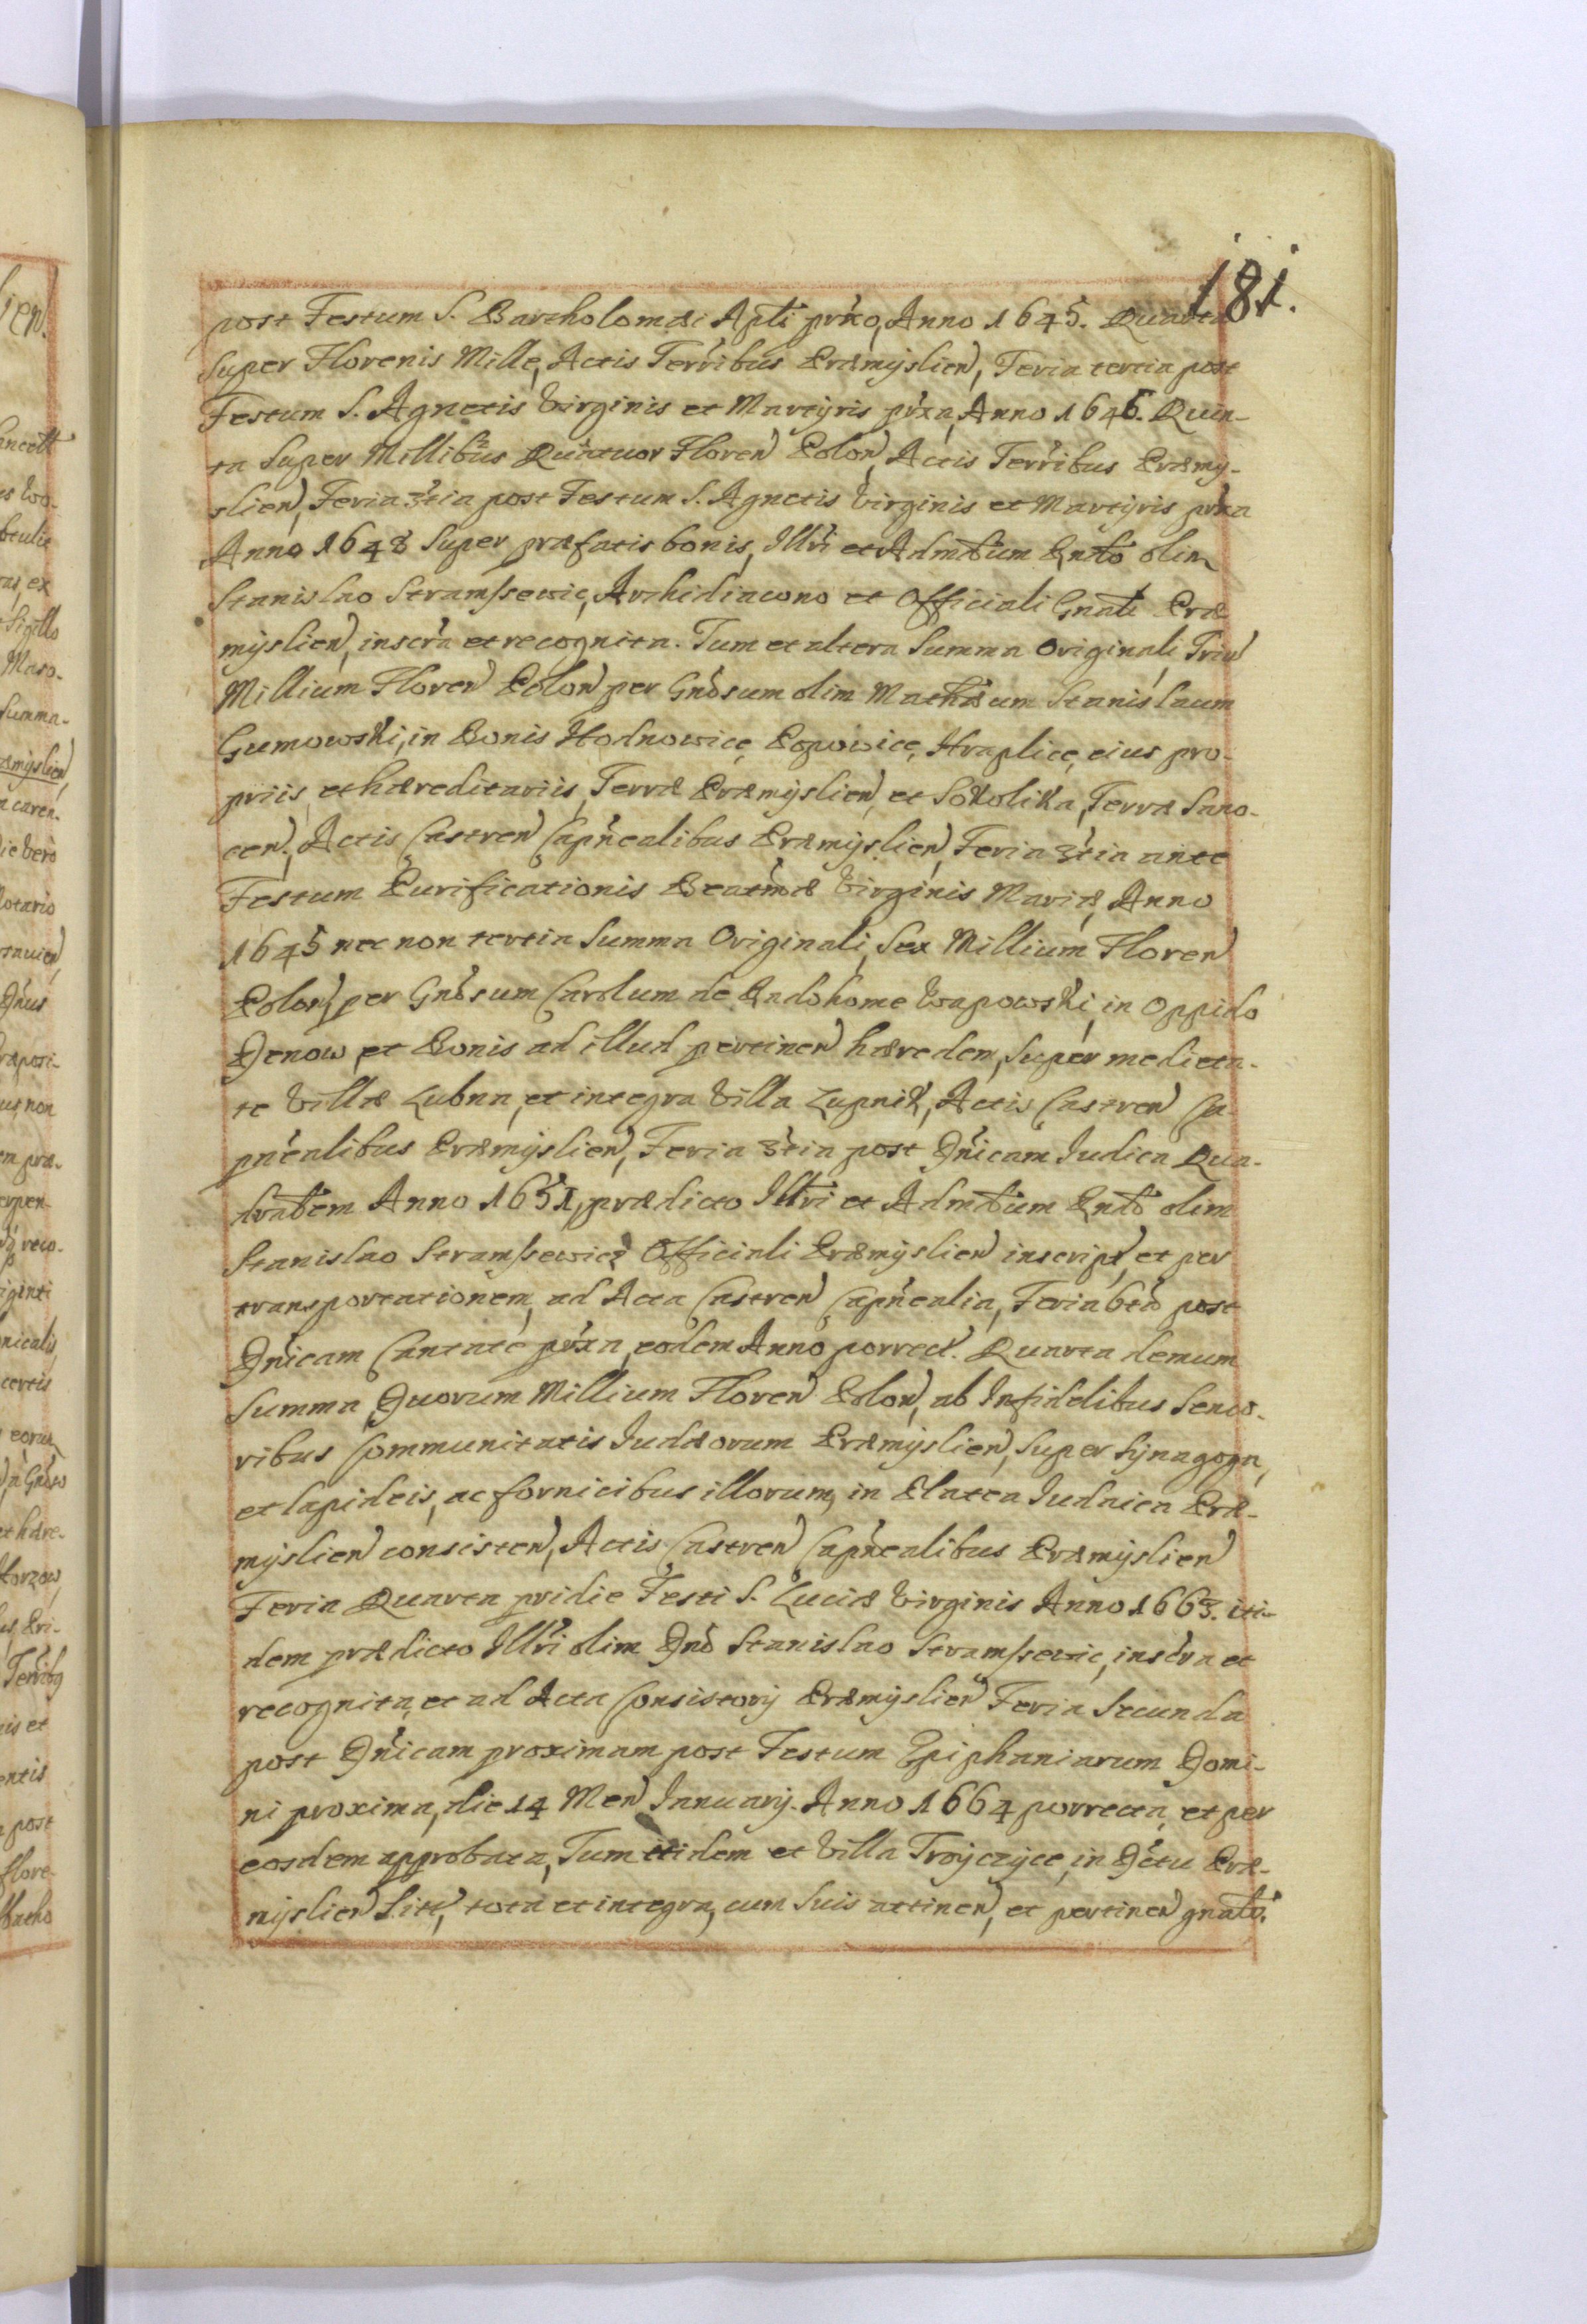 181.
post Festum S. Bartholomæi Apli prxo, Anno 1645. Quarta
Super Florenis Mille, Actis Terribus Præmyslien, Feria tertia post
Festum S. Agnetis Virginis et Martyris prxa, Anno 1646. Quin-
ta Super Millibus Quatuor Floren Polon, Actis Terribus Præmy-
slien, Feria 3tia post Festum S. Agnetis Virginis et Martyris prxa
Anno 1648 Super præfatis bonis, Illri et Admdum Rndo olim
Stanislao Stramszewic, Archidiacono et Officiali Gnali Præ
myslien, inscra et recognita. Tum et altera Summa Originali, Triu
Millium Floren Polon per Gnosum olim Mathæum Stanislaum
Gumowski, in Bonis Hodnowice, Popowice, Hraplice, eius pro-
priis, et hæreditariis, Terræ Præmyslien, et Sokolika, Terræ Sano-
cen. Actis Castren Capnealibus Præmyslien, Feria 3tia ante
Festum Purificationis Beatmæ Virginis Mariæ, Anno
1645 nec non tertia Summa Originali, Sex Millium Floren
Polon, per Gnosum Carolum de Radohome Wapowski, in Oppido
Dynow, et Bonis ad illud pertinen hæredem, Super medieta-
te Villæ Lubna, et integra Villa Lupnik, Actis Castren Ca
pnealibus Præmyslien, Feria 3tia post Dnicam Iudica Qua-
dralem Anno 1651, prædicto Illri et Admdum Rndo olim
Stanislao Stramszewicz Officiali Præmyslien inscript, et per
transportationem, ad Acta Castren Capnealia, Feria 6ta post
Dnicam Cantate prxa, eodem Anno porrect. Quarta demum
Summa Duorum Millium Floren Polon, ab Infidelibus Senio-
ribus Communitatis Iudæorum Præmyslien, Super Synagoga,
et lapideis, ac fornicibus illorum, in Platea Iudaica Præ-
myslien consisten, Actis Castren Capnealibus Præmyslien
Feria Quarta pridie Festi S. Luciæ Virginis Anno 1663. iti-
dem prædicto Illri olim Dno Stanislao Stramszewic, inscra et
recognita, et ad Acta Consistorij Præmyslien Feria Secunda
post Dnicam proximam post Festum Epiphaniarum Domi-
ni proxima, die 14 Men Ianuarij. Anno 1664 porrecta, et per
eosdem approbata, Tum itidem et Villa Troyczyce, in Dctu Præ-
myslien Site, tota et integra, cum Suis attinen, et pertinen gnalr.